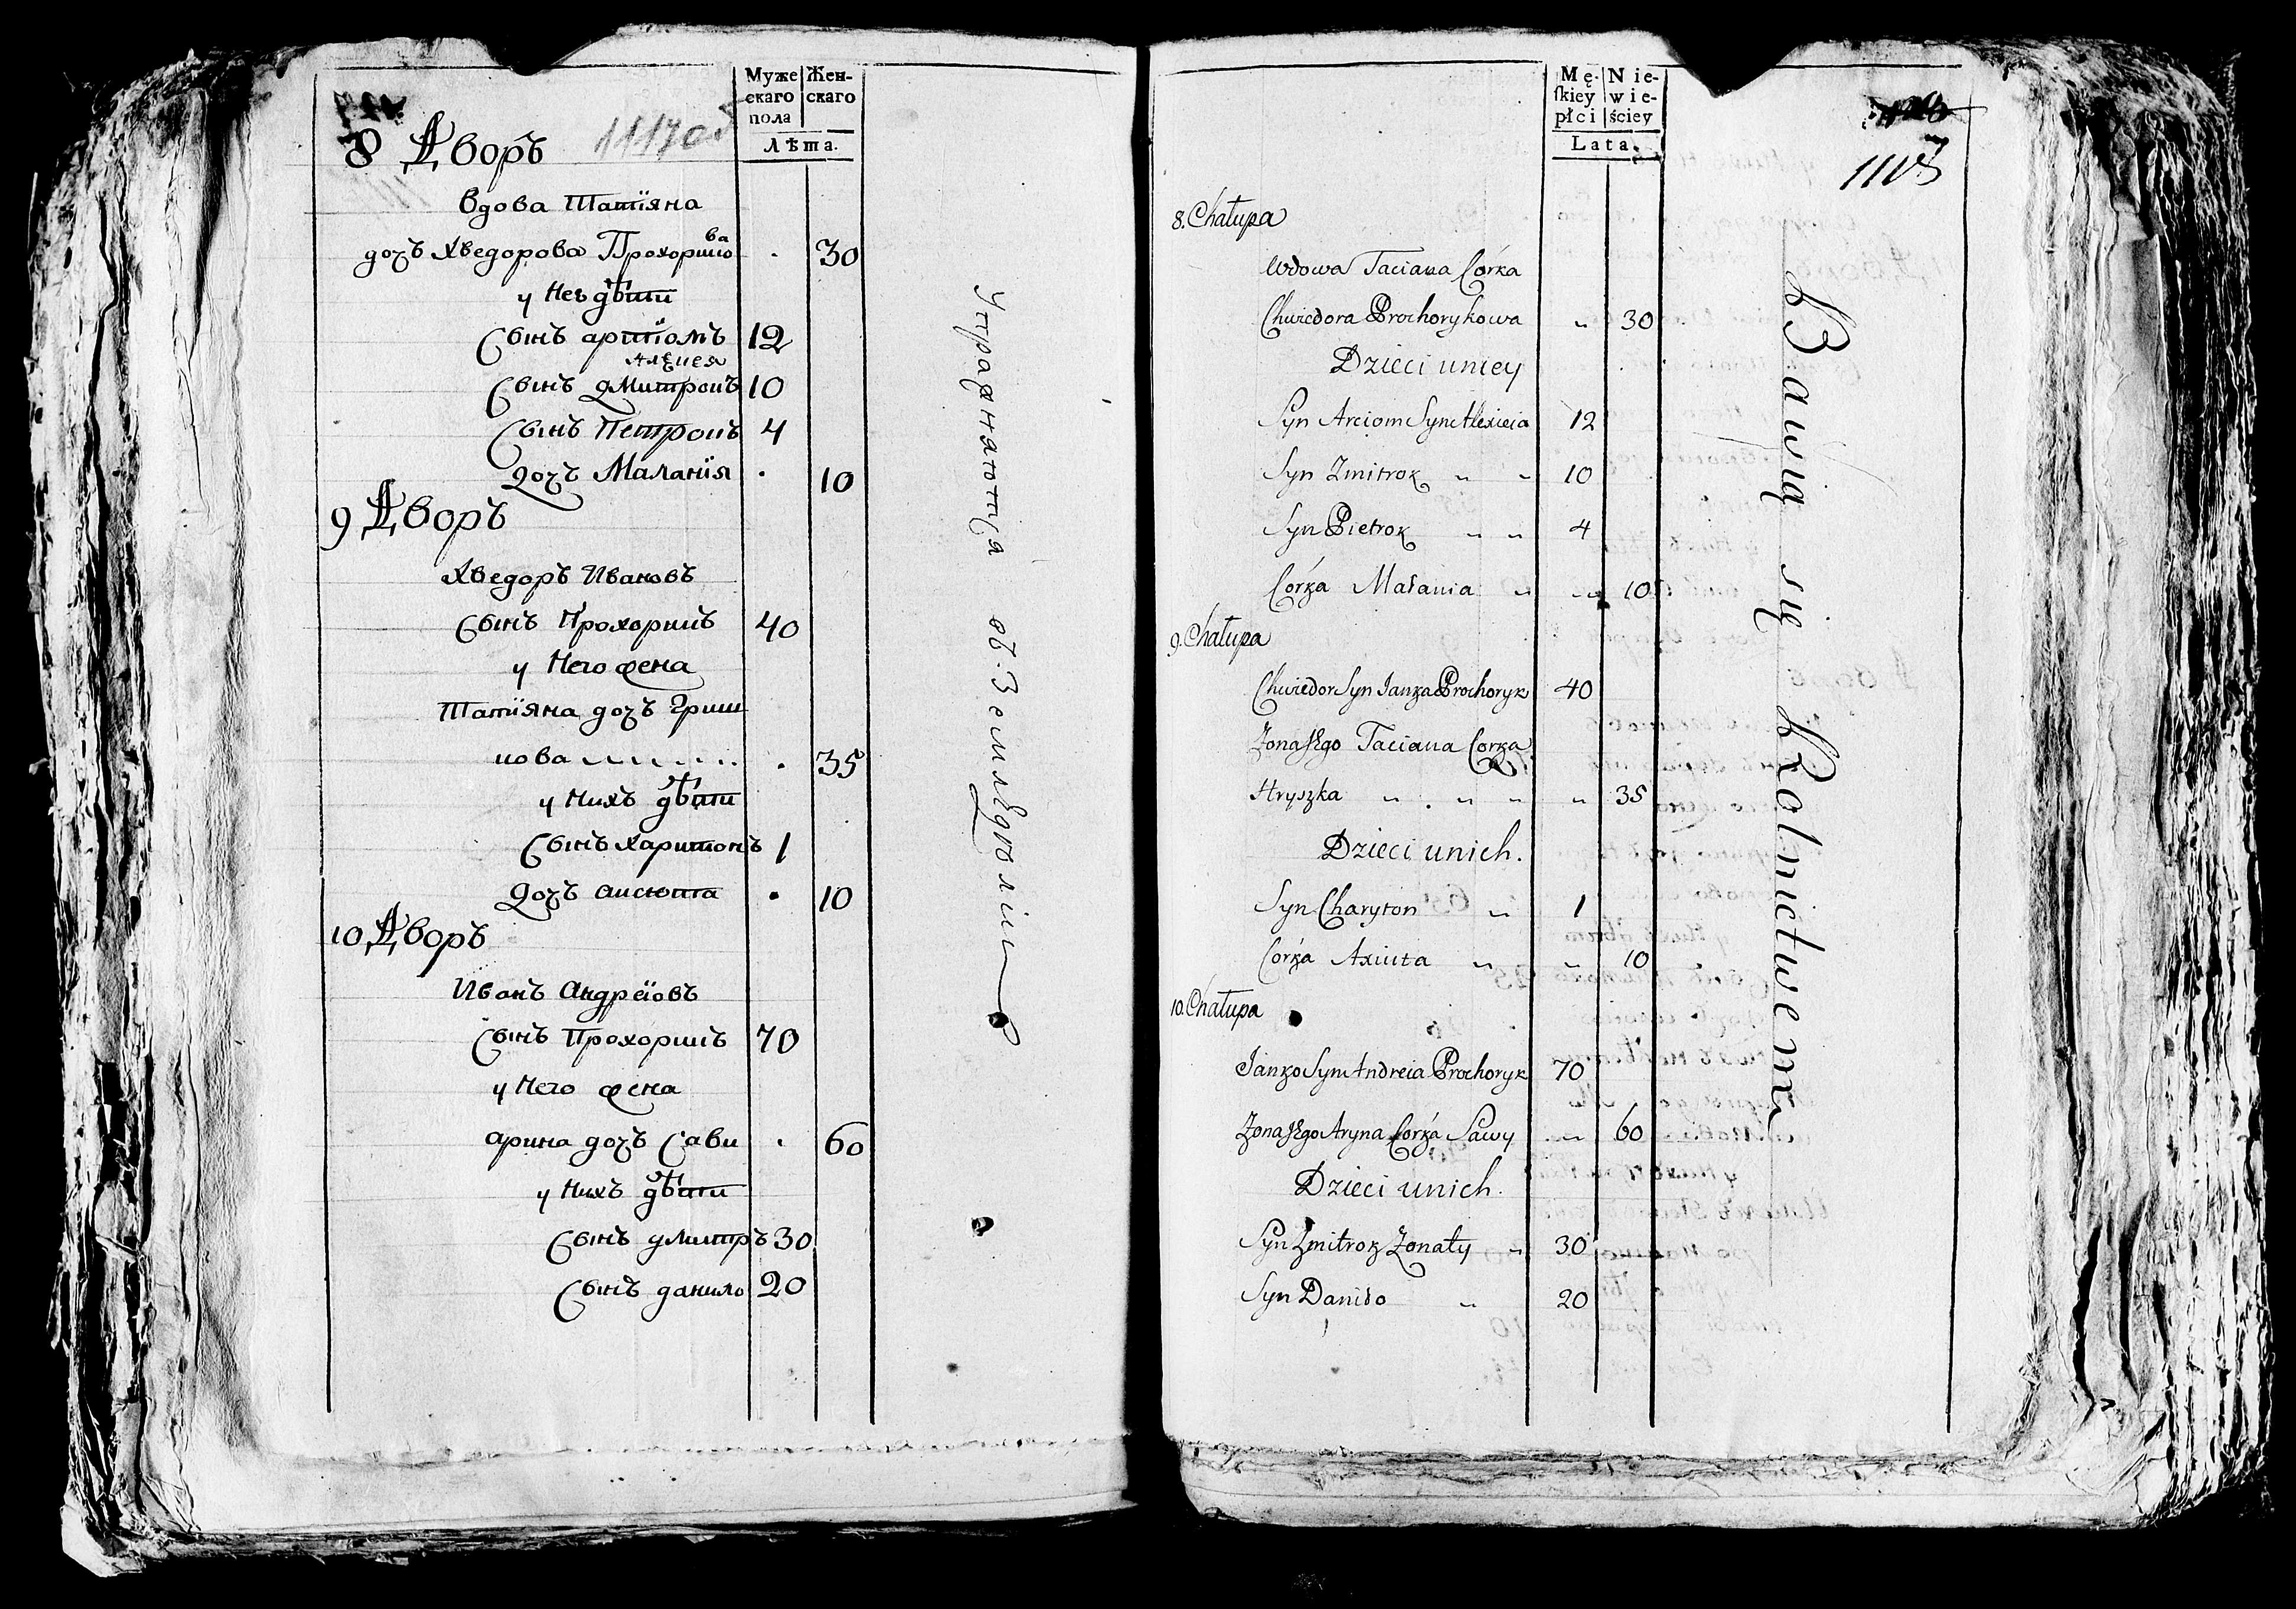 Муже Жен-
скаго скаго
пола
Лѣта.
1117об
8 Дворъ
Вдова Татїяна
дочъ Хведорова Прохорико
ва
. 30
у нея дѣти
Сынъ артїомъ 12
Алексея
Сынъ дмитрокъ 10
Сынъ Петрокъ 4
дочъ Маланїя . 10
9 Дворъ
Хведоръ Ивановъ
Сынъ Прохорикъ 40
у Него жена
Татїяна дочъ Гриш
кова . 35
у Нихъ дѣти
Сынъ Харитонъ 1
дочъ аксюта . 10
10 Дворъ
Иванъ Андреїовъ
Сынъ Прохорикъ 70
у Него жена
арина дочъ Сави . 60
у Нихъ дѣти
Сынъ дмитръ 30
Сынъ данило 20
Упражняются въ Земледѣліи
Mę- Nie-
skiey wie-
płci ściey
Lata.
1118
8. Chałupa
Wdowa Taciana Córka
Chwiedora Prochorykowa " 30
Dzieci uniey
Syn Arciom Syn Alexieia 12
Syn Zmitrok " " 10
Syn Pietrok " " 4
Córka Małania " " 10
9. Chałupa
Chwiedor Syn Janka Prochoryk 40
Żona Jego Taciana Corka
Hryszka " . " " " 35
Dzieci unich.
Syn Charyton " 1
Córka Axiuta " " 10
10. Chałupa
Janko Syn Andreia Prochoryk 70
Żona Jego Aryna Corka Sawy " 60
Dzieci unich.
Syn Zmitrok Żonaty " 30
Syn Daniło " 20
Bawią się Rolnictwem